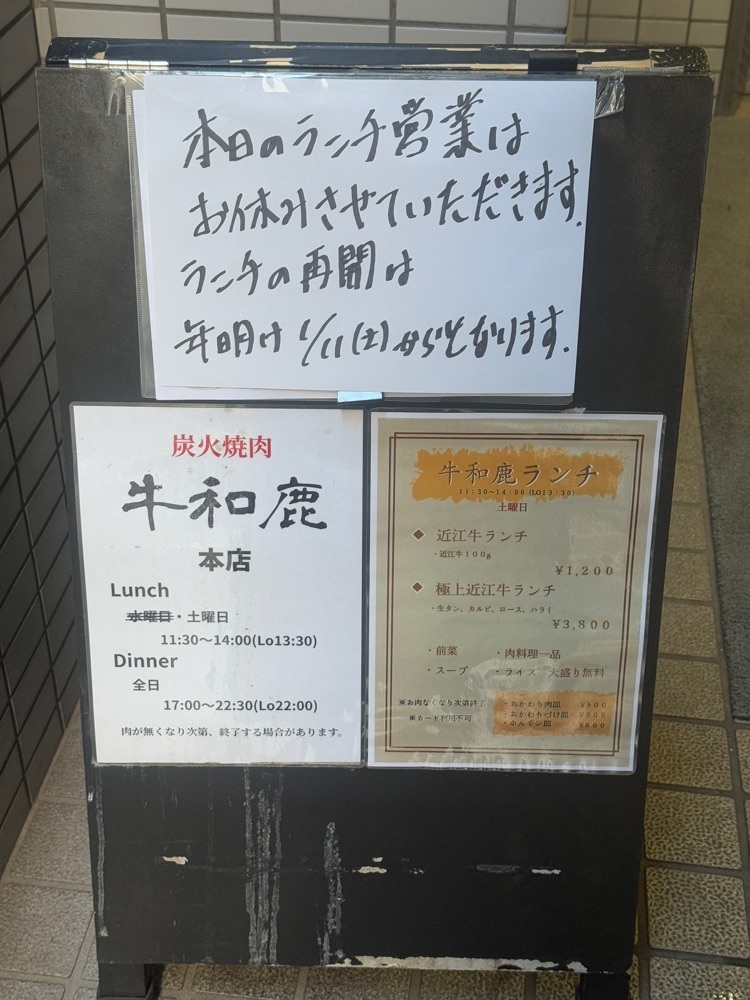 本日のランチ営業は
お休みさせていただきます.
ランチの再開は
年明け 1/11(土)からとなります.
炭火焼肉
牛和鹿
本店
Lunch
水曜日・土曜日
11:30～14:00(Lo13:30)
Dinner
全日
17:00～22:30(Lo22:00)
肉が無くなり次第、終了する場合があります。
牛和鹿ランチ
11:30～14:00 (LO13:30)
土曜日
◆ 近江牛ランチ
・近江牛100g
¥1,200
◆ 極上近江牛ランチ
・生タン、カルビ、ロース、ハラミ
¥3,800
・前菜 ・肉料理一品
・スープ ・ライス 大盛り無料
※お肉なくなり次第終了
※カード利用不可
・おかわり肉皿 ¥800
・おかわりづけ皿 ¥900
・ホルモン皿 ¥800